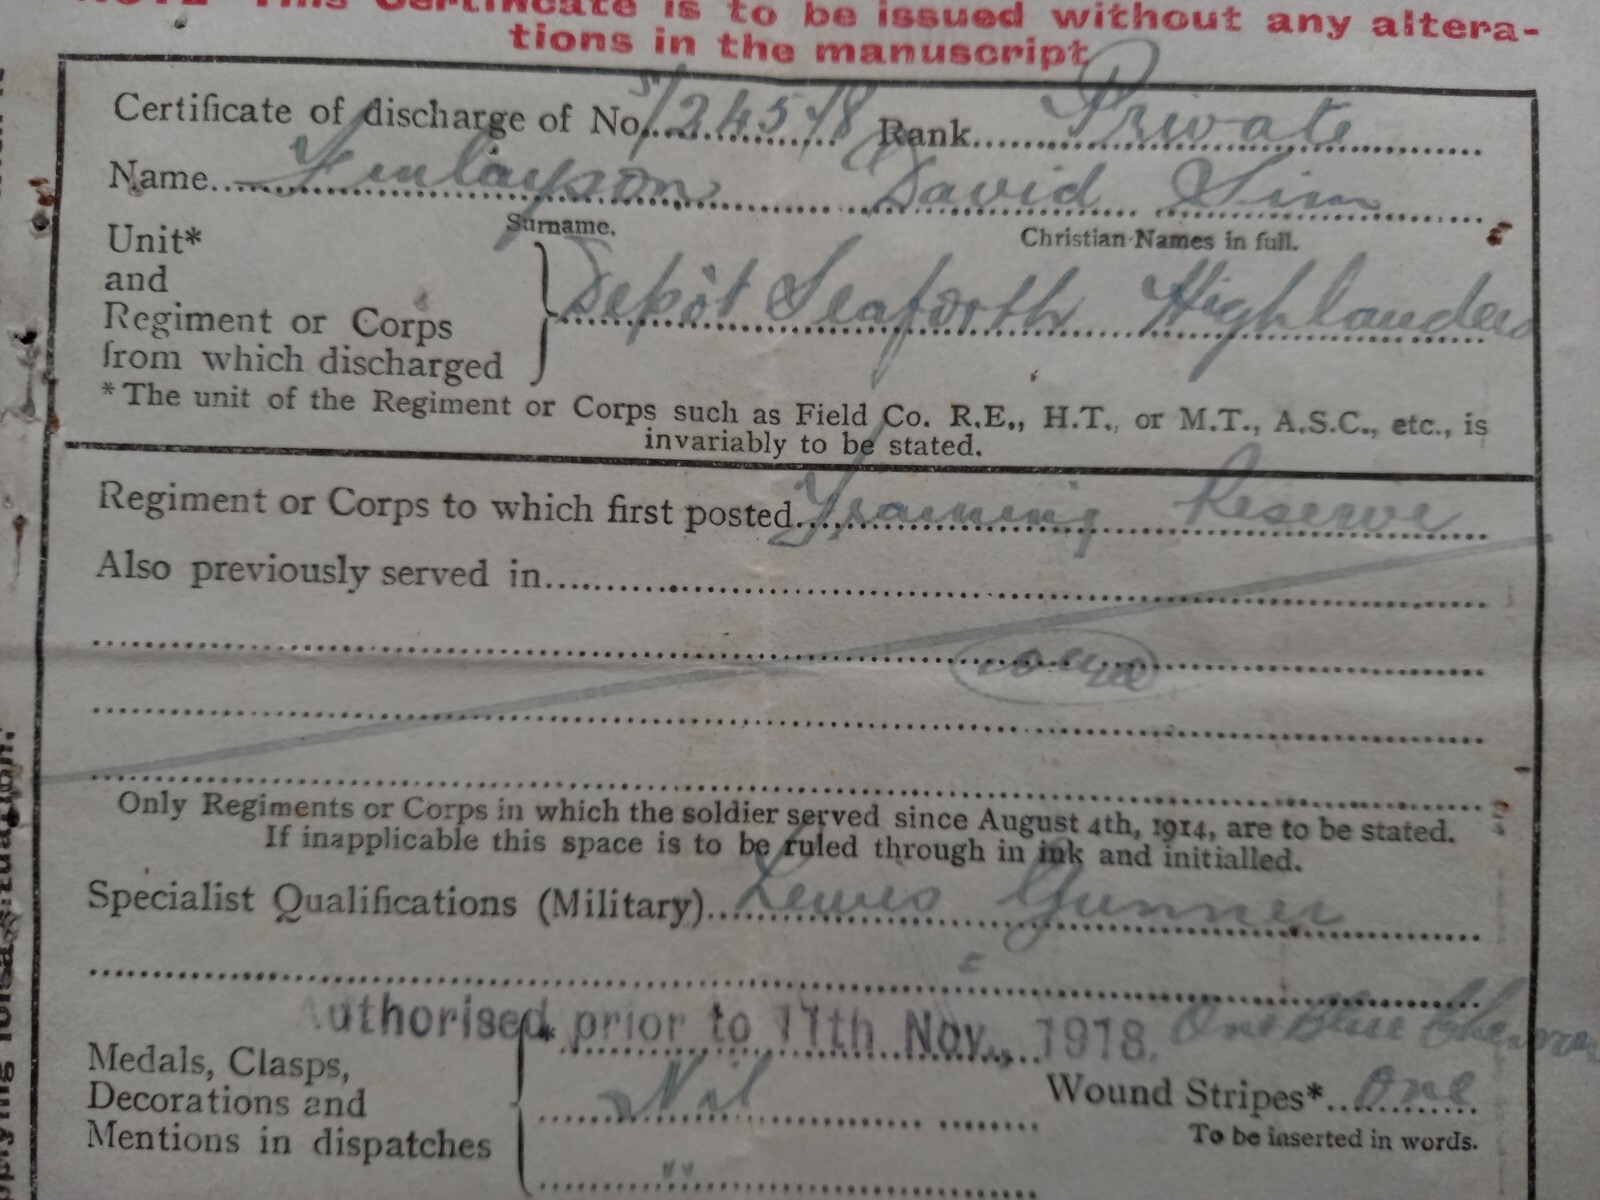 NOTE This Certificate is to be issued without any altera-
tions in the manuscript
Certificate of discharge of No. Rank Private
Name Finlayson David Sim
Surname. Christian Names in full.
Unit*
and
Regiment or Corps
from which discharged
Depôt Seaforth Highlanders
*The unit of the Regiment or Corps such as Field Co. R.E., H.T., or M.T., A.S.C., etc., is
invariably to be stated.
Regiment or Corps to which first posted Training Reserve
Also previously served in
Only Regiments or Corps in which the soldier served since August 4th, 1914, are to be stated.
If inapplicable this space is to be ruled through in ink and initialled.
Specialist Qualifications (Military) Lewis Gunner
Authorised prior to 11th Nov., 1918. One Blue Chevron
Medals, Clasps,
Decorations and
Mentions in dispatches
* Nil
Wound Stripes* One
To be inserted in words.